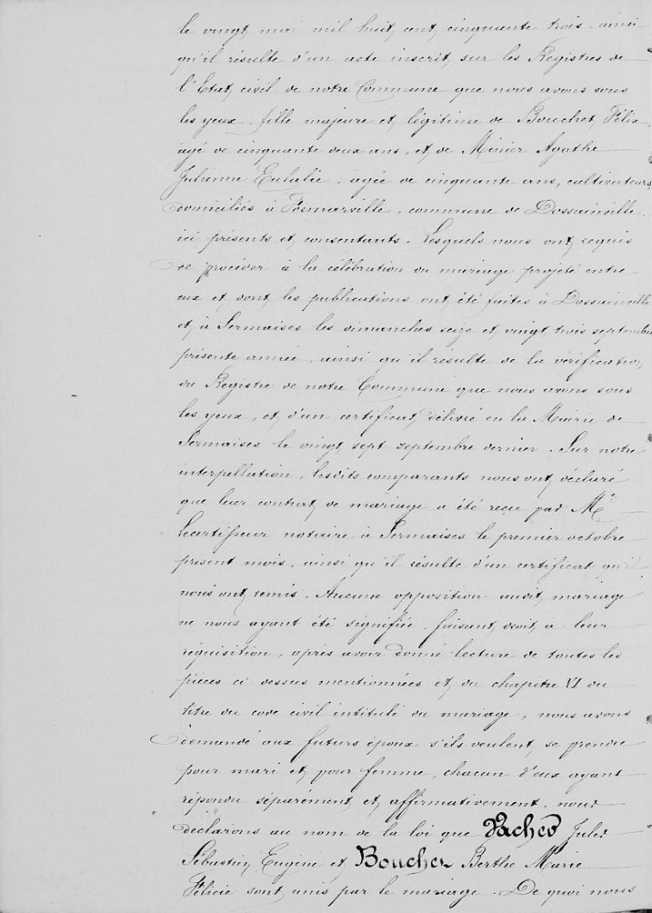 le vingt mai mil huit cent cinquante trois, ainsi
qu'il résulte d'un acte inscrit sur les Registres de
l'Etat civil de notre Commune que nous avons sous
les yeux, fille majeure et légitime de Bouchet Félix
agé de cinquante deux ans, et de Minier Agathe
Julienne Eulalie, agée de cinquante ans, cultivateurs,
domiciliés à Fremarville, commune de Dossainville,
ici présents et consentants. Lesquels nous ont requis
de procéder à la célébration du mariage projeté entre
eux et dont les publications ont été faites à Dossainville
et à Sermaises les dimanches seize et vingt trois septembre
présente année, ainsi qu'il résulte de la vérification
du Registre de notre Commune que nous avons sous
les yeux, et d'un certificat délivré en la Mairie de
Sermaises le vingt sept septembre dernier. Sur notre
interpellation, lesdits comparants nous ont déclaré
que leur contrat de mariage a été reçu par Me
notaire à Sermaises le premier octobre
présent mois, ainsi qu'il résulte d'un certificat qu'il
nous ont remis. Aucune opposition audit mariage
ne nous ayant été signifiée, faisant droit à leur
réquisition, après avoir donné lecture de toutes les
pièces ci dessus mentionnées et du chapitre VI du
titre du code civil intitulé du mariage, nous avons
demandé aux futurs époux s'ils veulent se prendre
pour mari et pour femme, chacun d'eux ayant
répondu séparément et affirmativement, nous
déclarons au nom de la loi que Vacher Jules
Sébastien Eugène et Bouchet Berthe Marie
Félicie sont unis par le mariage. De quoi nous